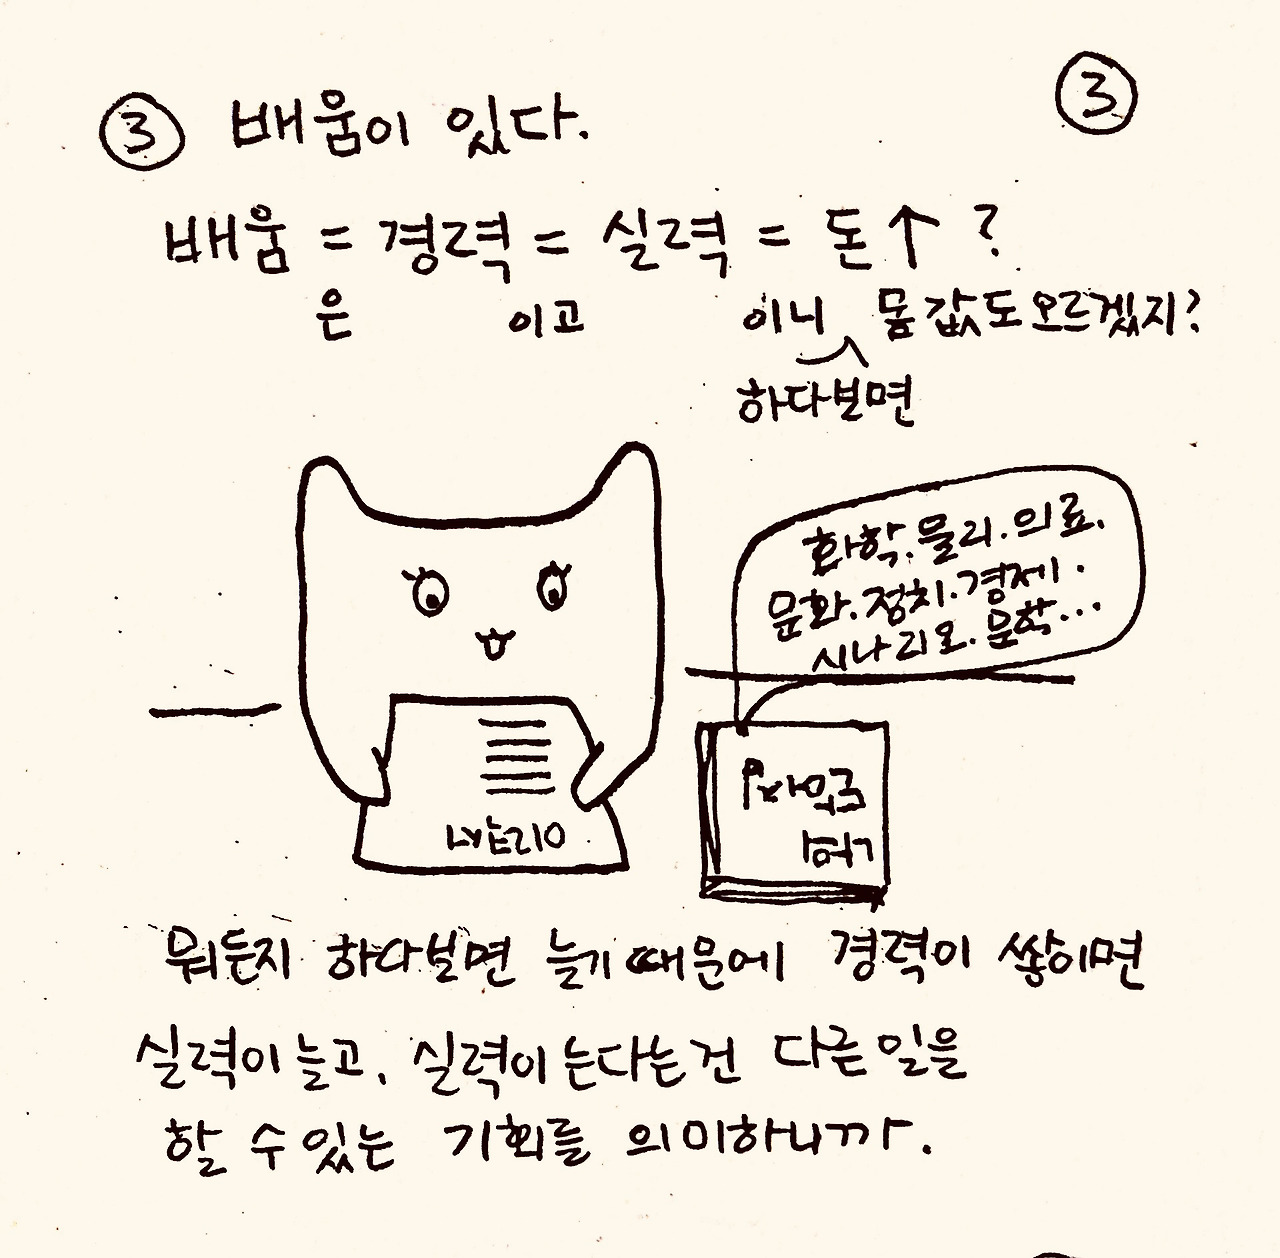 ③ 배움이 있다.
③
배움 = 경력 = 실력 = 돈↑ ?
은 이고 이니 몸값도오르겠지?
하다보면
화학.물리.의료.
문화.정치.경제.
시나리오.문학...
뭐든지 하다보면 늘기 때문에 경력이 쌓이면
실력이 늘고, 실력이 는다는건 다른 일을
할 수 있는 기회를 의미하니까.